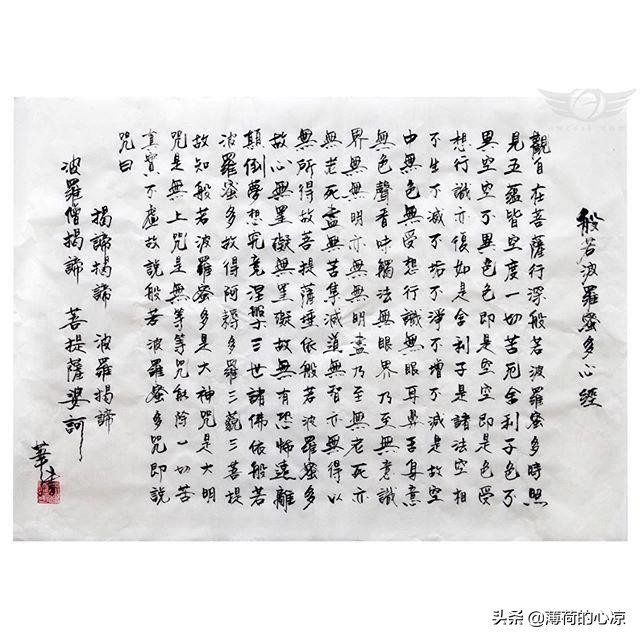 般若波羅蜜多心經
觀自在菩薩行深般若波羅蜜多時照
見五蘊皆空度一切苦厄舍利子色不
異空空不異色色即是空空即是色受
想行識亦復如是舍利子是諸法空相
不生不滅不垢不淨不增不減是故空
中無色無受想行識無眼耳鼻舌身意
無色聲香味觸法無眼界乃至無意識
界無無明亦無無明盡乃至無老死亦
無老死盡無苦集滅道無智亦無得以
無所得故菩提薩埵依般若波羅蜜多
故心無罣礙無罣礙故無有恐怖遠離
顛倒夢想究竟涅槃三世諸佛依般若
波羅蜜多故得阿耨多羅三藐三菩提
故知般若波羅蜜多是大神咒是大明
咒是無上咒是無等等咒能除一切苦
真實不虛故說般若波羅蜜多咒即說
咒曰
揭諦揭諦 波羅揭諦
波羅僧揭諦 菩提薩婆訶
头条 @薄荷的心凉